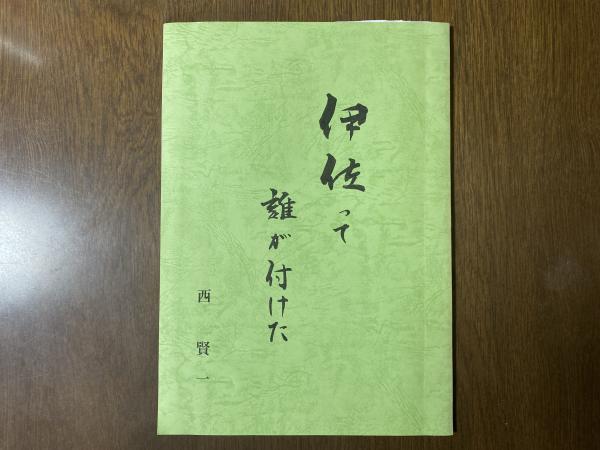 伊佐って
誰が付けた
西賢一